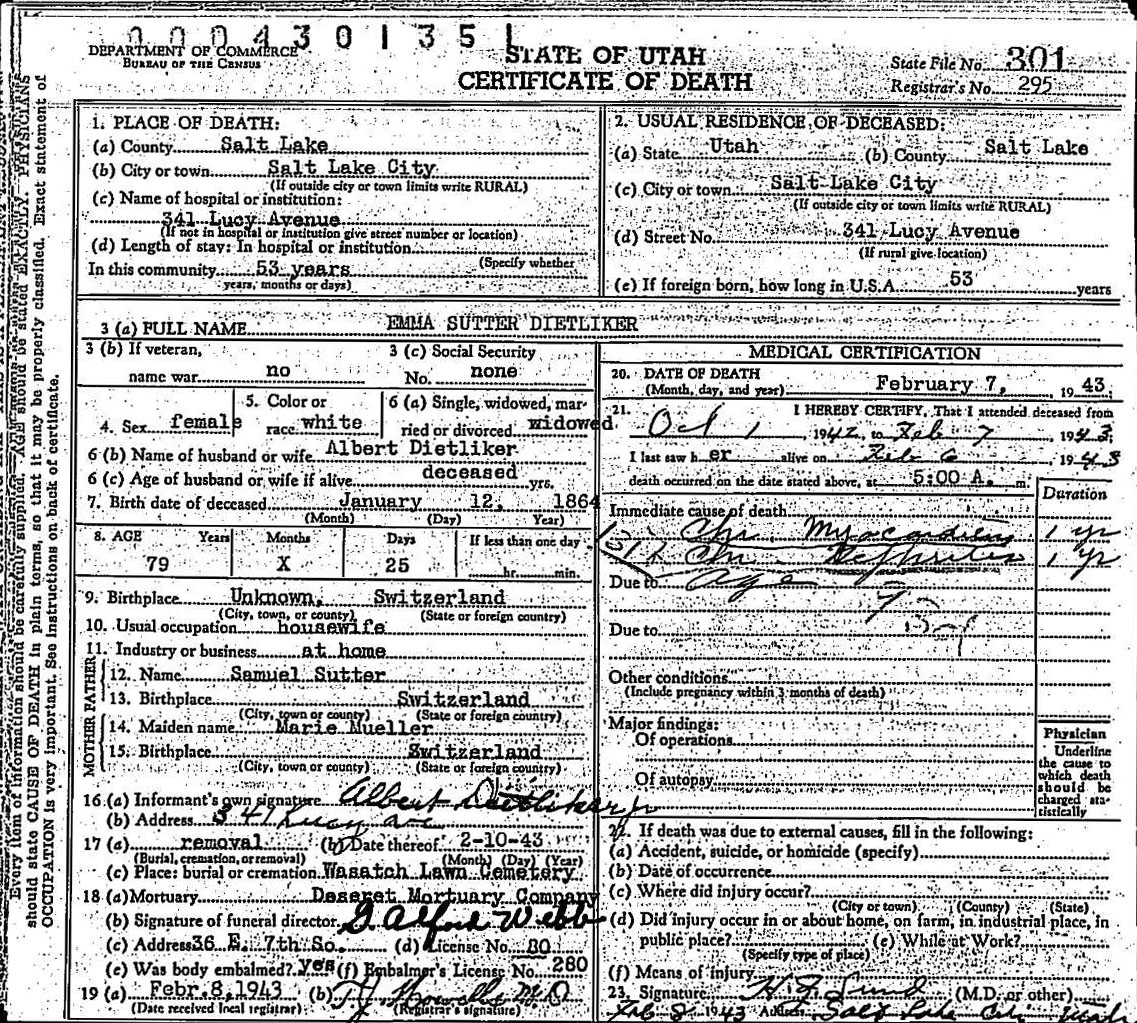 0004301351
DEPARTMENT OF COMMERCE
BUREAU OF THE CENSUS
STATE OF UTAH
CERTIFICATE OF DEATH
State File No. 301
Registrar's No. 295
1. PLACE OF DEATH:
(a) County Salt Lake
(b) City or town Salt Lake City
(If outside city or town limits write RURAL)
(c) Name of hospital or institution:
341 Lucy Avenue
(If not in hospital or institution give street number or location)
(d) Length of stay: In hospital or institution
(Specify whether
In this community 53 years
years, months or days)
2. USUAL RESIDENCE OF DECEASED:
(a) State Utah (b) County Salt Lake
(c) City or town Salt Lake City
(If outside city or town limits write RURAL)
(d) Street No. 341 Lucy Avenue
(If rural give location)
(e) If foreign born, how long in U.S.A. 53 years
3 (a) FULL NAME EMMA SUTTER DIETLIKER
3 (b) If veteran,
name war no
3 (c) Social Security
No. none
4. Sex female
5. Color or
race white
6 (a) Single, widowed, mar-
ried or divorced widowed.
6 (b) Name of husband or wife Albert Dietliker
6 (c) Age of husband or wife if alive deceased yrs.
7. Birth date of deceased January 12, 1864
(Month) (Day) Year)
8. AGE Years Months Days If less than one day
79 X 25 hr. min.
9. Birthplace Unknown, Switzerland
(City, town, or county) (State or foreign country)
10. Usual occupation housewife
11. Industry or business at home
FATHER
12. Name Samuel Sutter
13. Birthplace Switzerland
(City, town or county) (State or foreign country)
MOTHER
14. Maiden name Marie Mueller
15. Birthplace Switzerland
(City, town or county) (State or foreign country)
16 (a) Informant's own signature Albert Dietliker jr
(b) Address 341 Lucy ave
17 (a) removal (b) Date thereof 2-10-43
(Burial, cremation, or removal) (Month) (Day) (Year)
(c) Place: burial or cremation Wasatch Lawn Cemetery
18 (a) Mortuary Deseret Mortuary Company
(b) Signature of funeral director G. Alford Webb
(c) Address 36 E. 7th So. (d) License No. 80
(e) Was body embalmed? yes (f) Embalmer's License No. 280
19 (a) Febr. 8, 1943 (b)
(Date received local registrar) (Registrar's signature)
MEDICAL CERTIFICATION
20. DATE OF DEATH
(Month, day, and year) February 7, 1943.
21. I HEREBY CERTIFY, That I attended deceased from
Oct 1, 1942, to Feb 7, 1943.
I last saw her alive on Feb 6 1943
death occurred on the date stated above, at 5:00 A. m.
Duration
Immediate cause of death
Chr. Myocarditis 1 yr
Chr. Nephritis 1 yr
Due to Age
Due to
Other conditions
(Include pregnancy within 3 months of death)
Major findings:
Of operations
Of autopsy
Physician
Underline
the cause to
which death
should be
charged sta-
tistically
22. If death was due to external causes, fill in the following:
(a) Accident, suicide, or homicide (specify)
(b) Date of occurrence
(c) Where did injury occur?
(City or town) (County) (State)
(d) Did injury occur in or about home, on farm, in industrial place, in
public place? (e) While at Work?
(Specify type of place)
(f) Means of injury
23. Signature (M.D. or other)
Feb 8 1943 Address Salt Lake City Utah
Every item of information should be carefully supplied. AGE should be stated EXACTLY. PHYSICIANS
should state CAUSE OF DEATH in plain terms, so that it may be properly classified. Exact statement of
OCCUPATION is very important. See instructions on back of certificate.